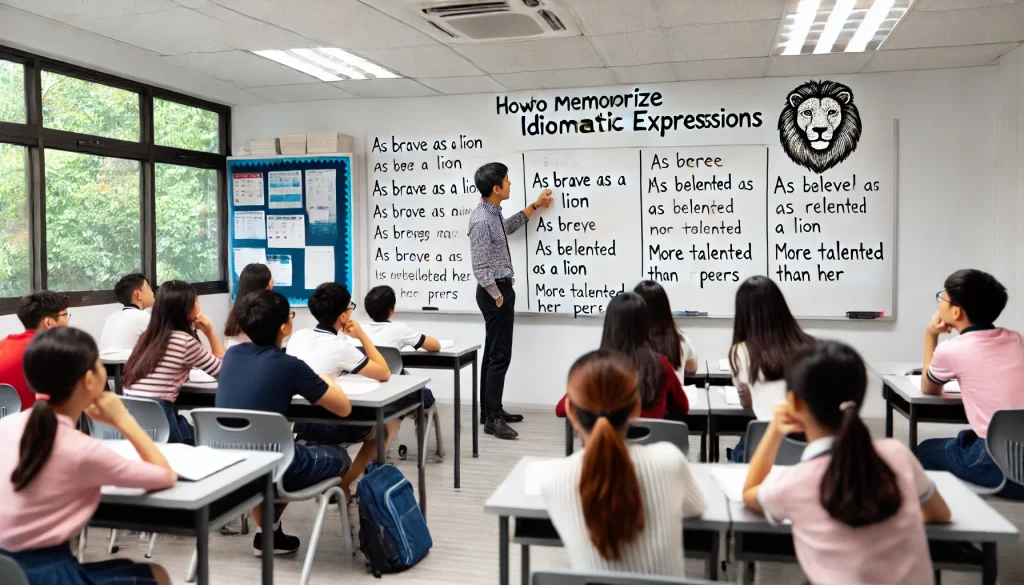 Howo Memoprize
Idiomatic Expresssions
As brave as a lion
as bee a lion
As brave as a lion
As brave as a lio
As brav as
As
As breve a as
her
her pers
As brave as a
lion
As breve
As belented
as a lion
More talented
her pers
As bcree
Ms belented as
as belented
nor talented
More talented
than peers
As belevel as
as relented
a lion
More talented
than her